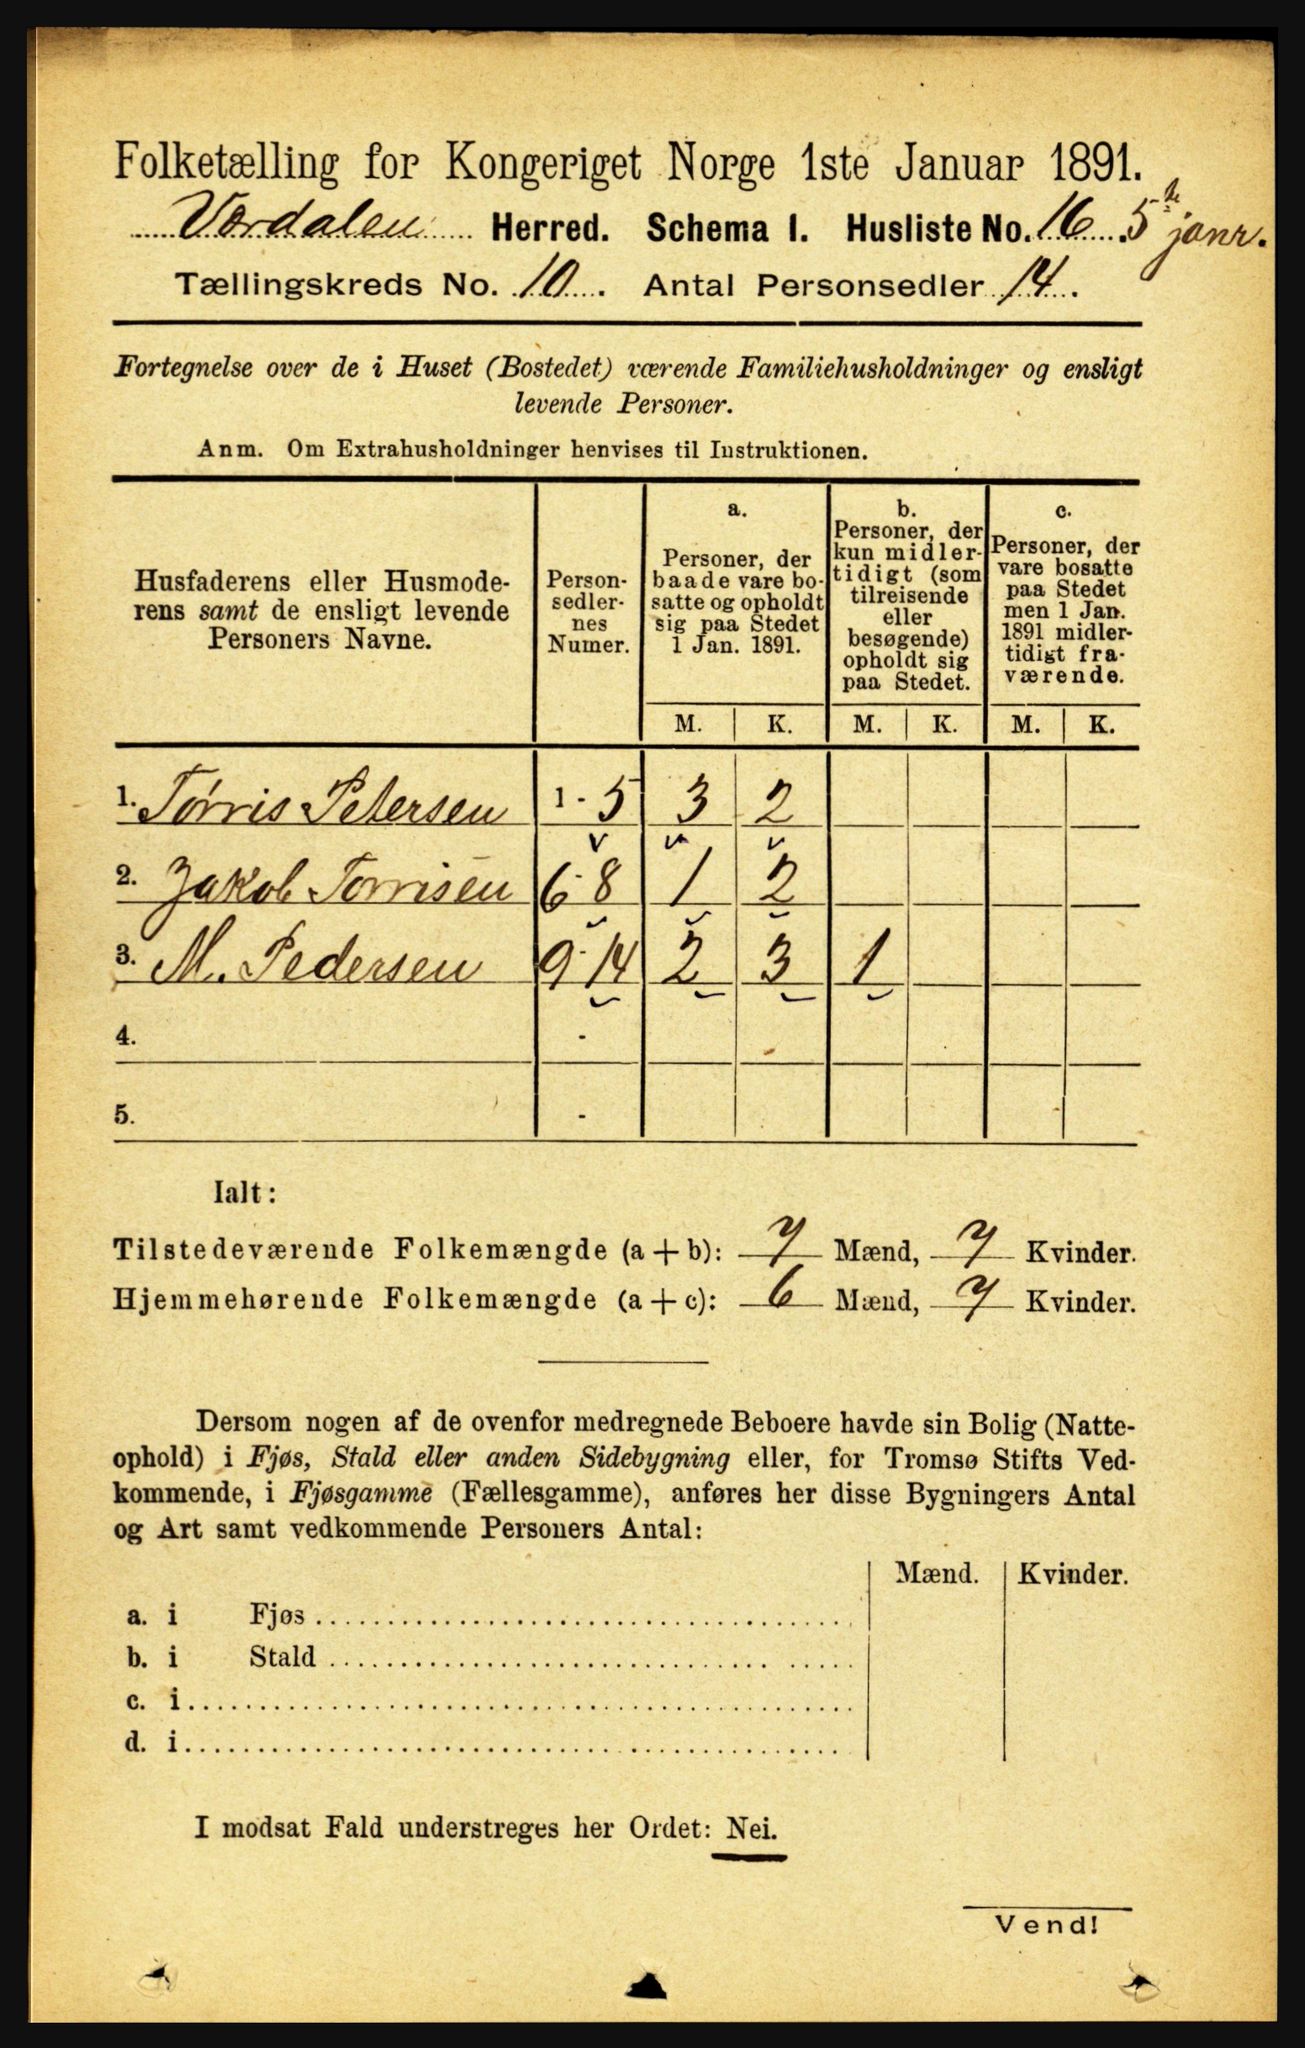 Folketælling for Kongeriget Norge 1ste Januar 1891.
Værdalen Herred. Schema I. Husliste No. 16. 5te janr.
Tællingskreds No. 10. Antal Personsedler 14.
Fortegnelse over de i Huset (Bostedet) værende Familiehusholdninger og ensligt
levende Personer.
Anm. Om Extrahusholdninger henvises til Instruktionen.
Husfaderens eller Husmode-
rens samt de ensligt levende
Personers Navne.
Person-
sedler-
nes
Numer.
a.
Personer, der
baade vare bo-
satte og opholdt
sig paa Stedet
1 Jan. 1891.
b.
Personer, der
kun midler-
tidigt (som
tilreisende
eller
besøgende)
opholdt sig
paa Stedet.
c.
Personer, der
vare bosatte
paa Stedet
men 1 Jan.
1891 midler-
tidigt fra-
værende.
M. K. M. K. M. K.
1. Tørris Petersen 1 - 5 3 2
2. Jakob Torrisen 6 - 8 1 2
3. M. Pedersen 9 - 14 2 3 1
4. -
5. -
Ialt:
Tilstedeværende Folkemængde (a + b): 7 Mænd, 7 Kvinder.
Hjemmehørende Folkemængde (a + c): 6 Mænd, 7 Kvinder.
Dersom nogen af de ovenfor medregnede Beboere havde sin Bolig (Natte-
ophold) i Fjøs, Stald eller anden Sidebygning eller, for Tromsø Stifts Ved-
kommende, i Fjøsgamme (Fællesgamme), anføres her disse Bygningers Antal
og Art samt vedkommende Personers Antal:
Mænd. Kvinder.
a. i Fjøs
b. i Stald
c. i
d. i
I modsat Fald understreges her Ordet: Nei.
Vend!